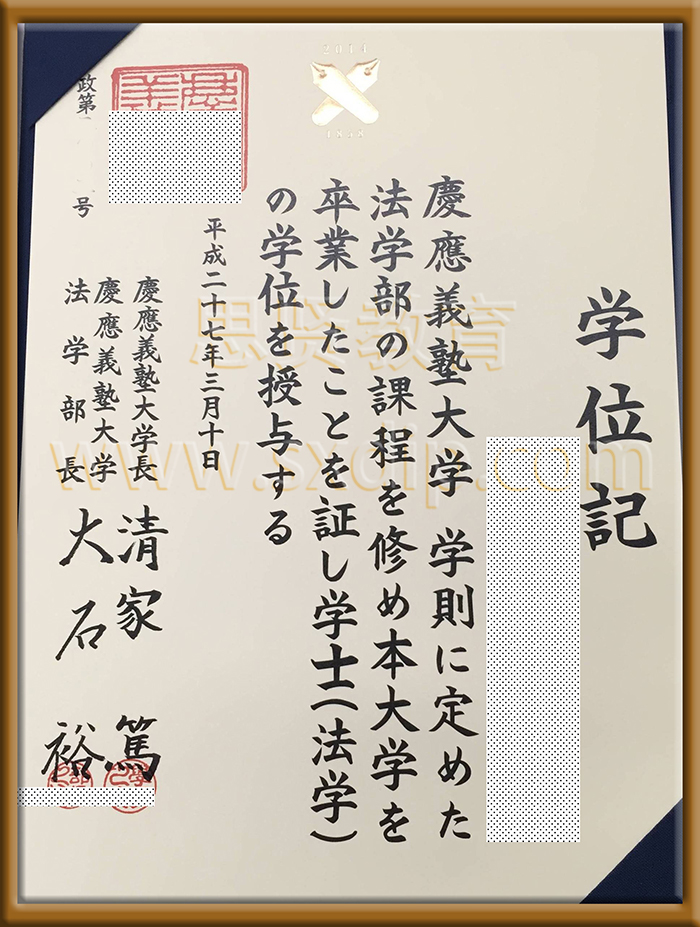 学位記
慶應義塾大学 学則に定めた
法学部の課程を修め本大学を
卒業したことを証し学士(法学)
の学位を授与する
平成二十七年三月十日
慶應義塾大学長 清家 篤
慶應義塾大学
法学部長 大石 裕
政第 号
2014
1858
思贤教育
www.sxdip.com